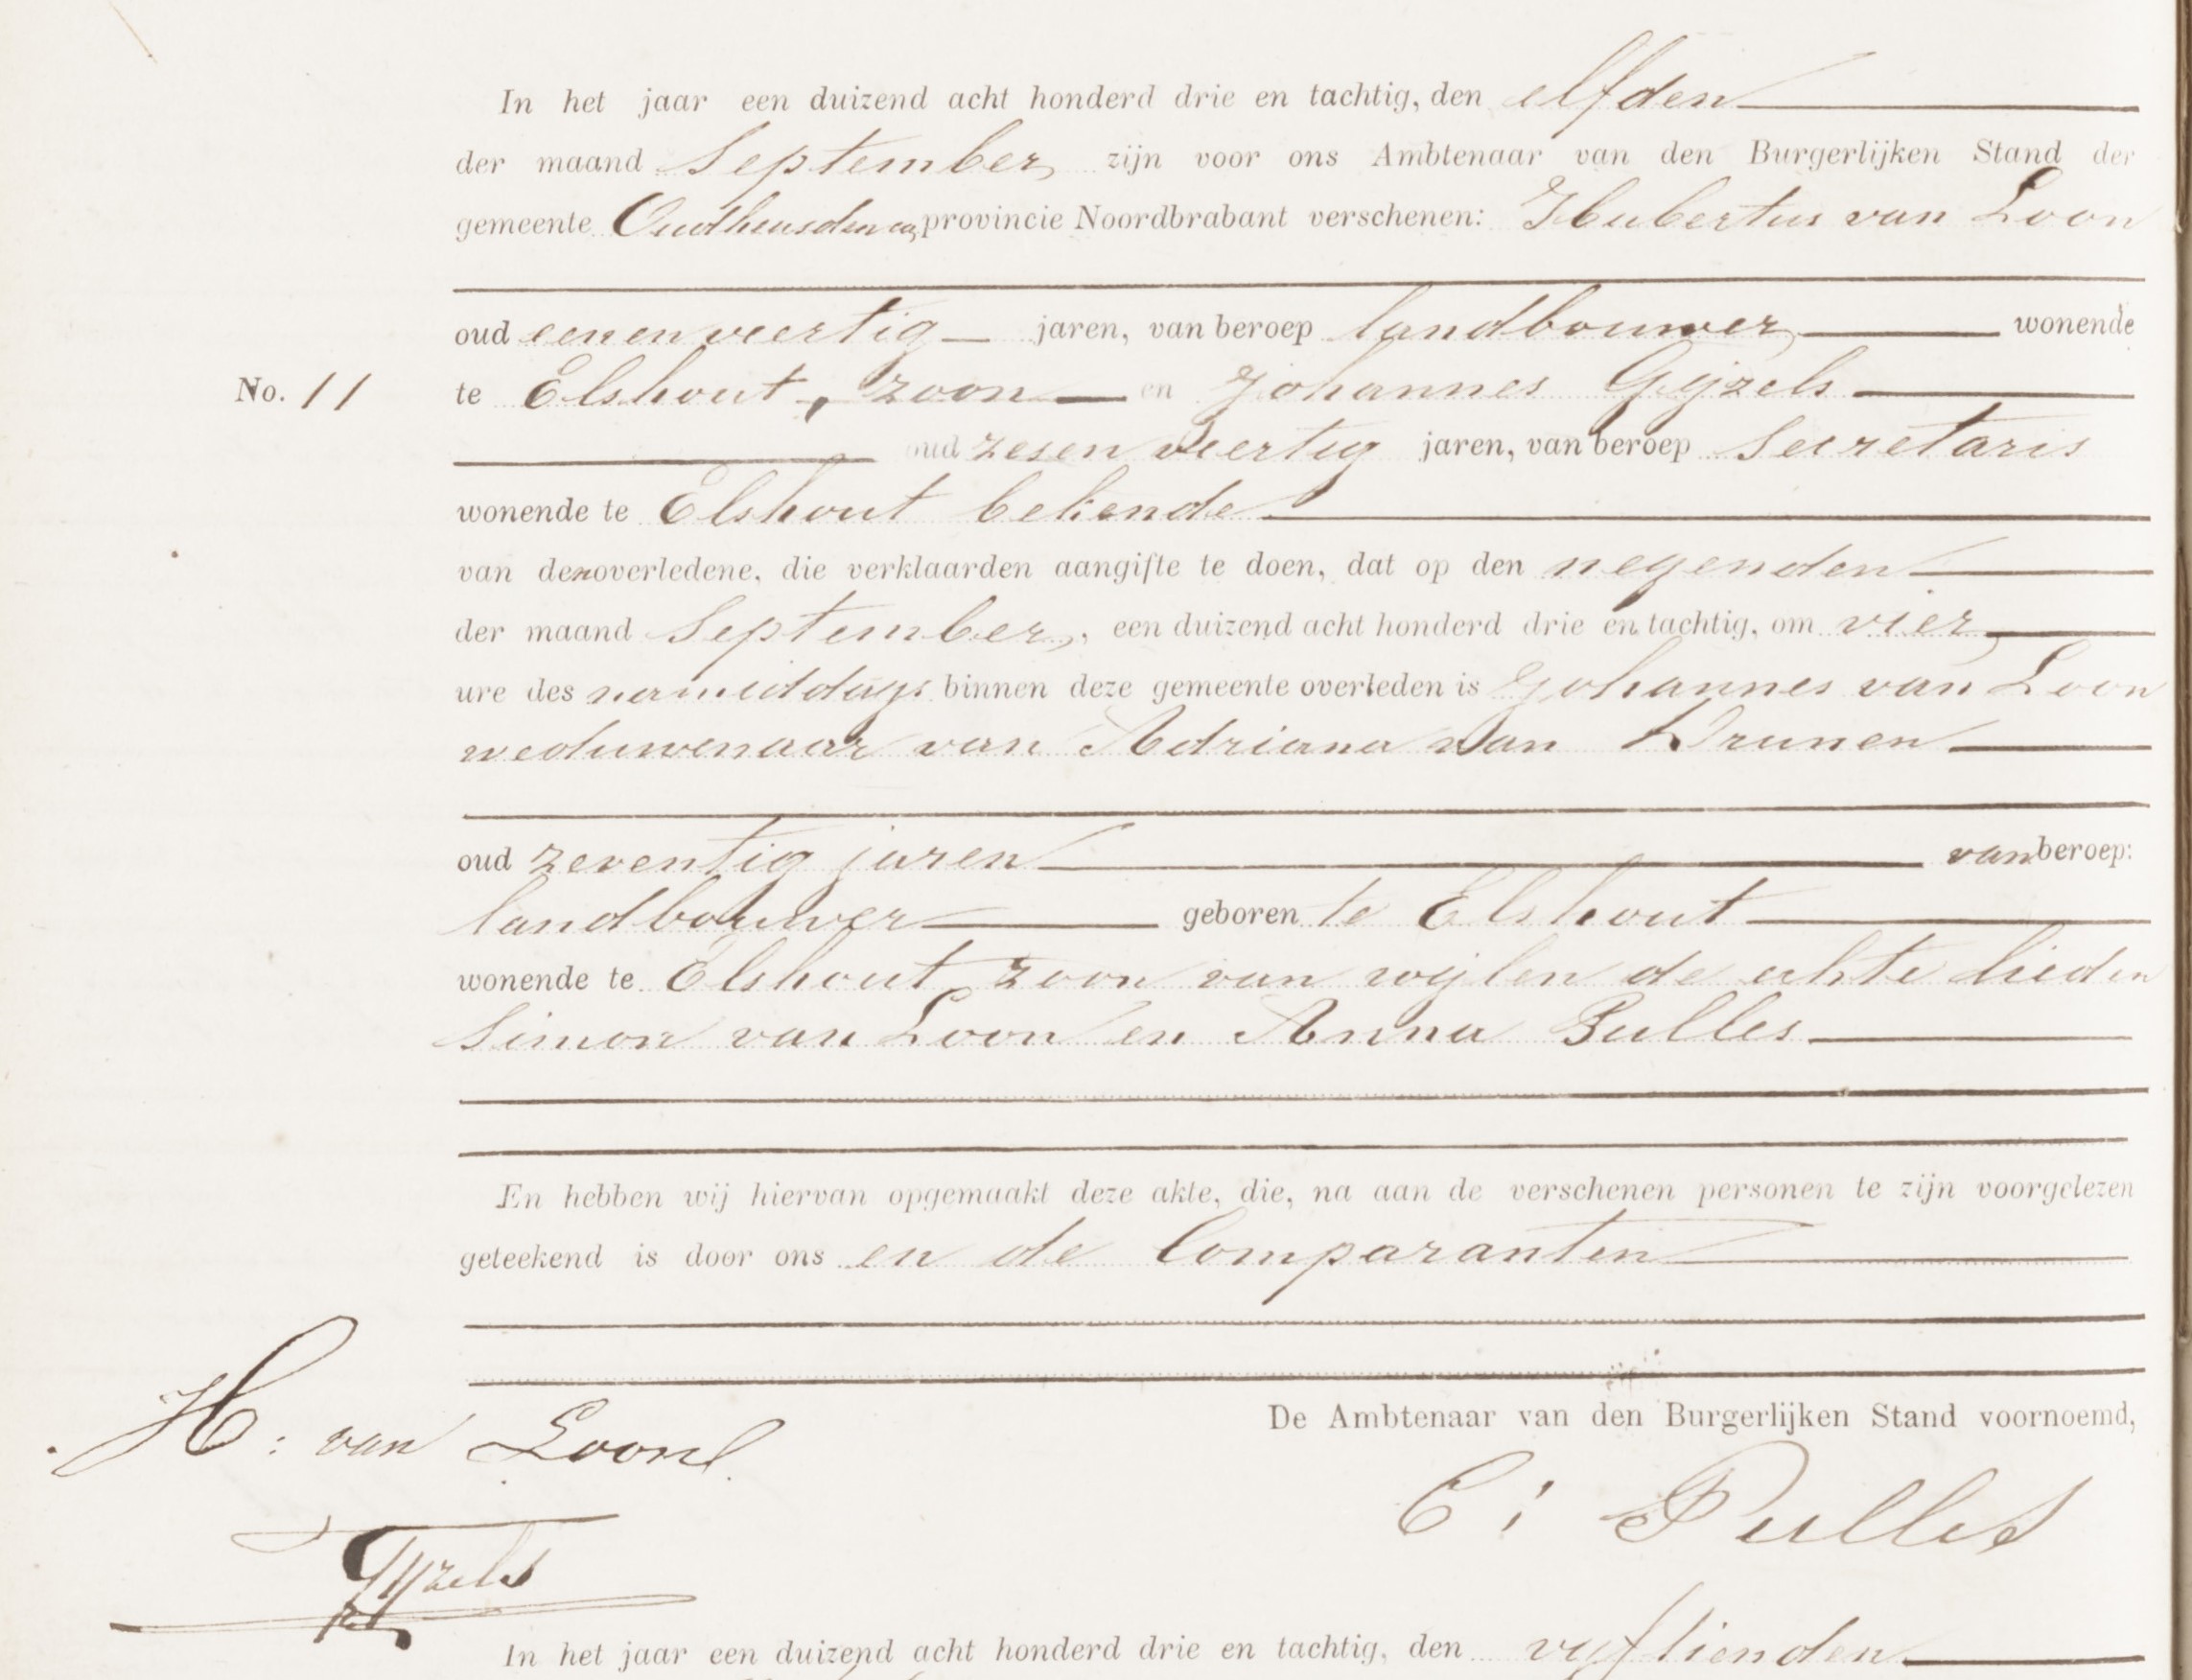 In het jaar een duizend acht honderd drie en tachtig, den elfden
der maand September zijn voor ons Ambtenaar van den Burgerlijken Stand der
gemeente Oudheusden ca, provincie Noordbrabant verschenen: Hubertus van Loon
oud eenenveertig jaren, van beroep landbouwer, wonende
No. 11 te Elshout, zoon en Johannes Gijzels
oud zesen veertig jaren, van beroep Secretaris
wonende te Elshout bekende
van den overledene, die verklaarden aangifte te doen, dat op den negenden
der maand September, een duizend acht honderd drie en tachtig, om vier
ure des namiddags binnen deze gemeente overleden is Johannes van Loon
weduwenaar van Adriana van Drunen
oud zeventig jaren van beroep:
landbouwer geboren te Elshout
wonende te Elshout zoon van wijlen de echte lieden
Simon van Loon en Anna Pulles
En hebben wij hiervan opgemaakt deze akte, die, na aan de verschenen personen te zijn voorgelezen
geteekend is door ons en de Comparanten
De Ambtenaar van den Burgerlijken Stand voornoemd,
H: van Loon
C: Pulles
Gijzels
In het jaar een duizend acht honderd drie en tachtig, den vijftienden